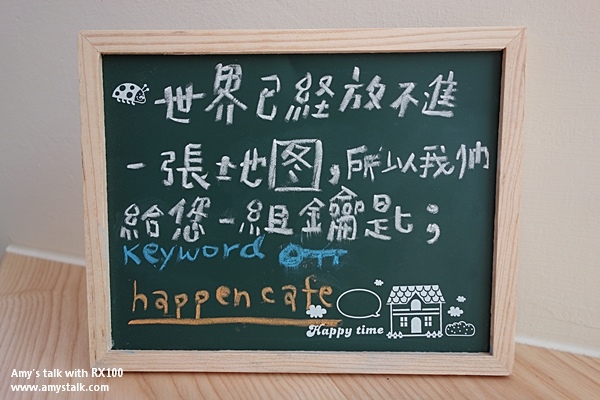 世界已経放不進
一張土地图,所以我們
給您一組鑰匙;
keyword
happen cafe
Happy time
Amy's talk with RX100
www.amystalk.com